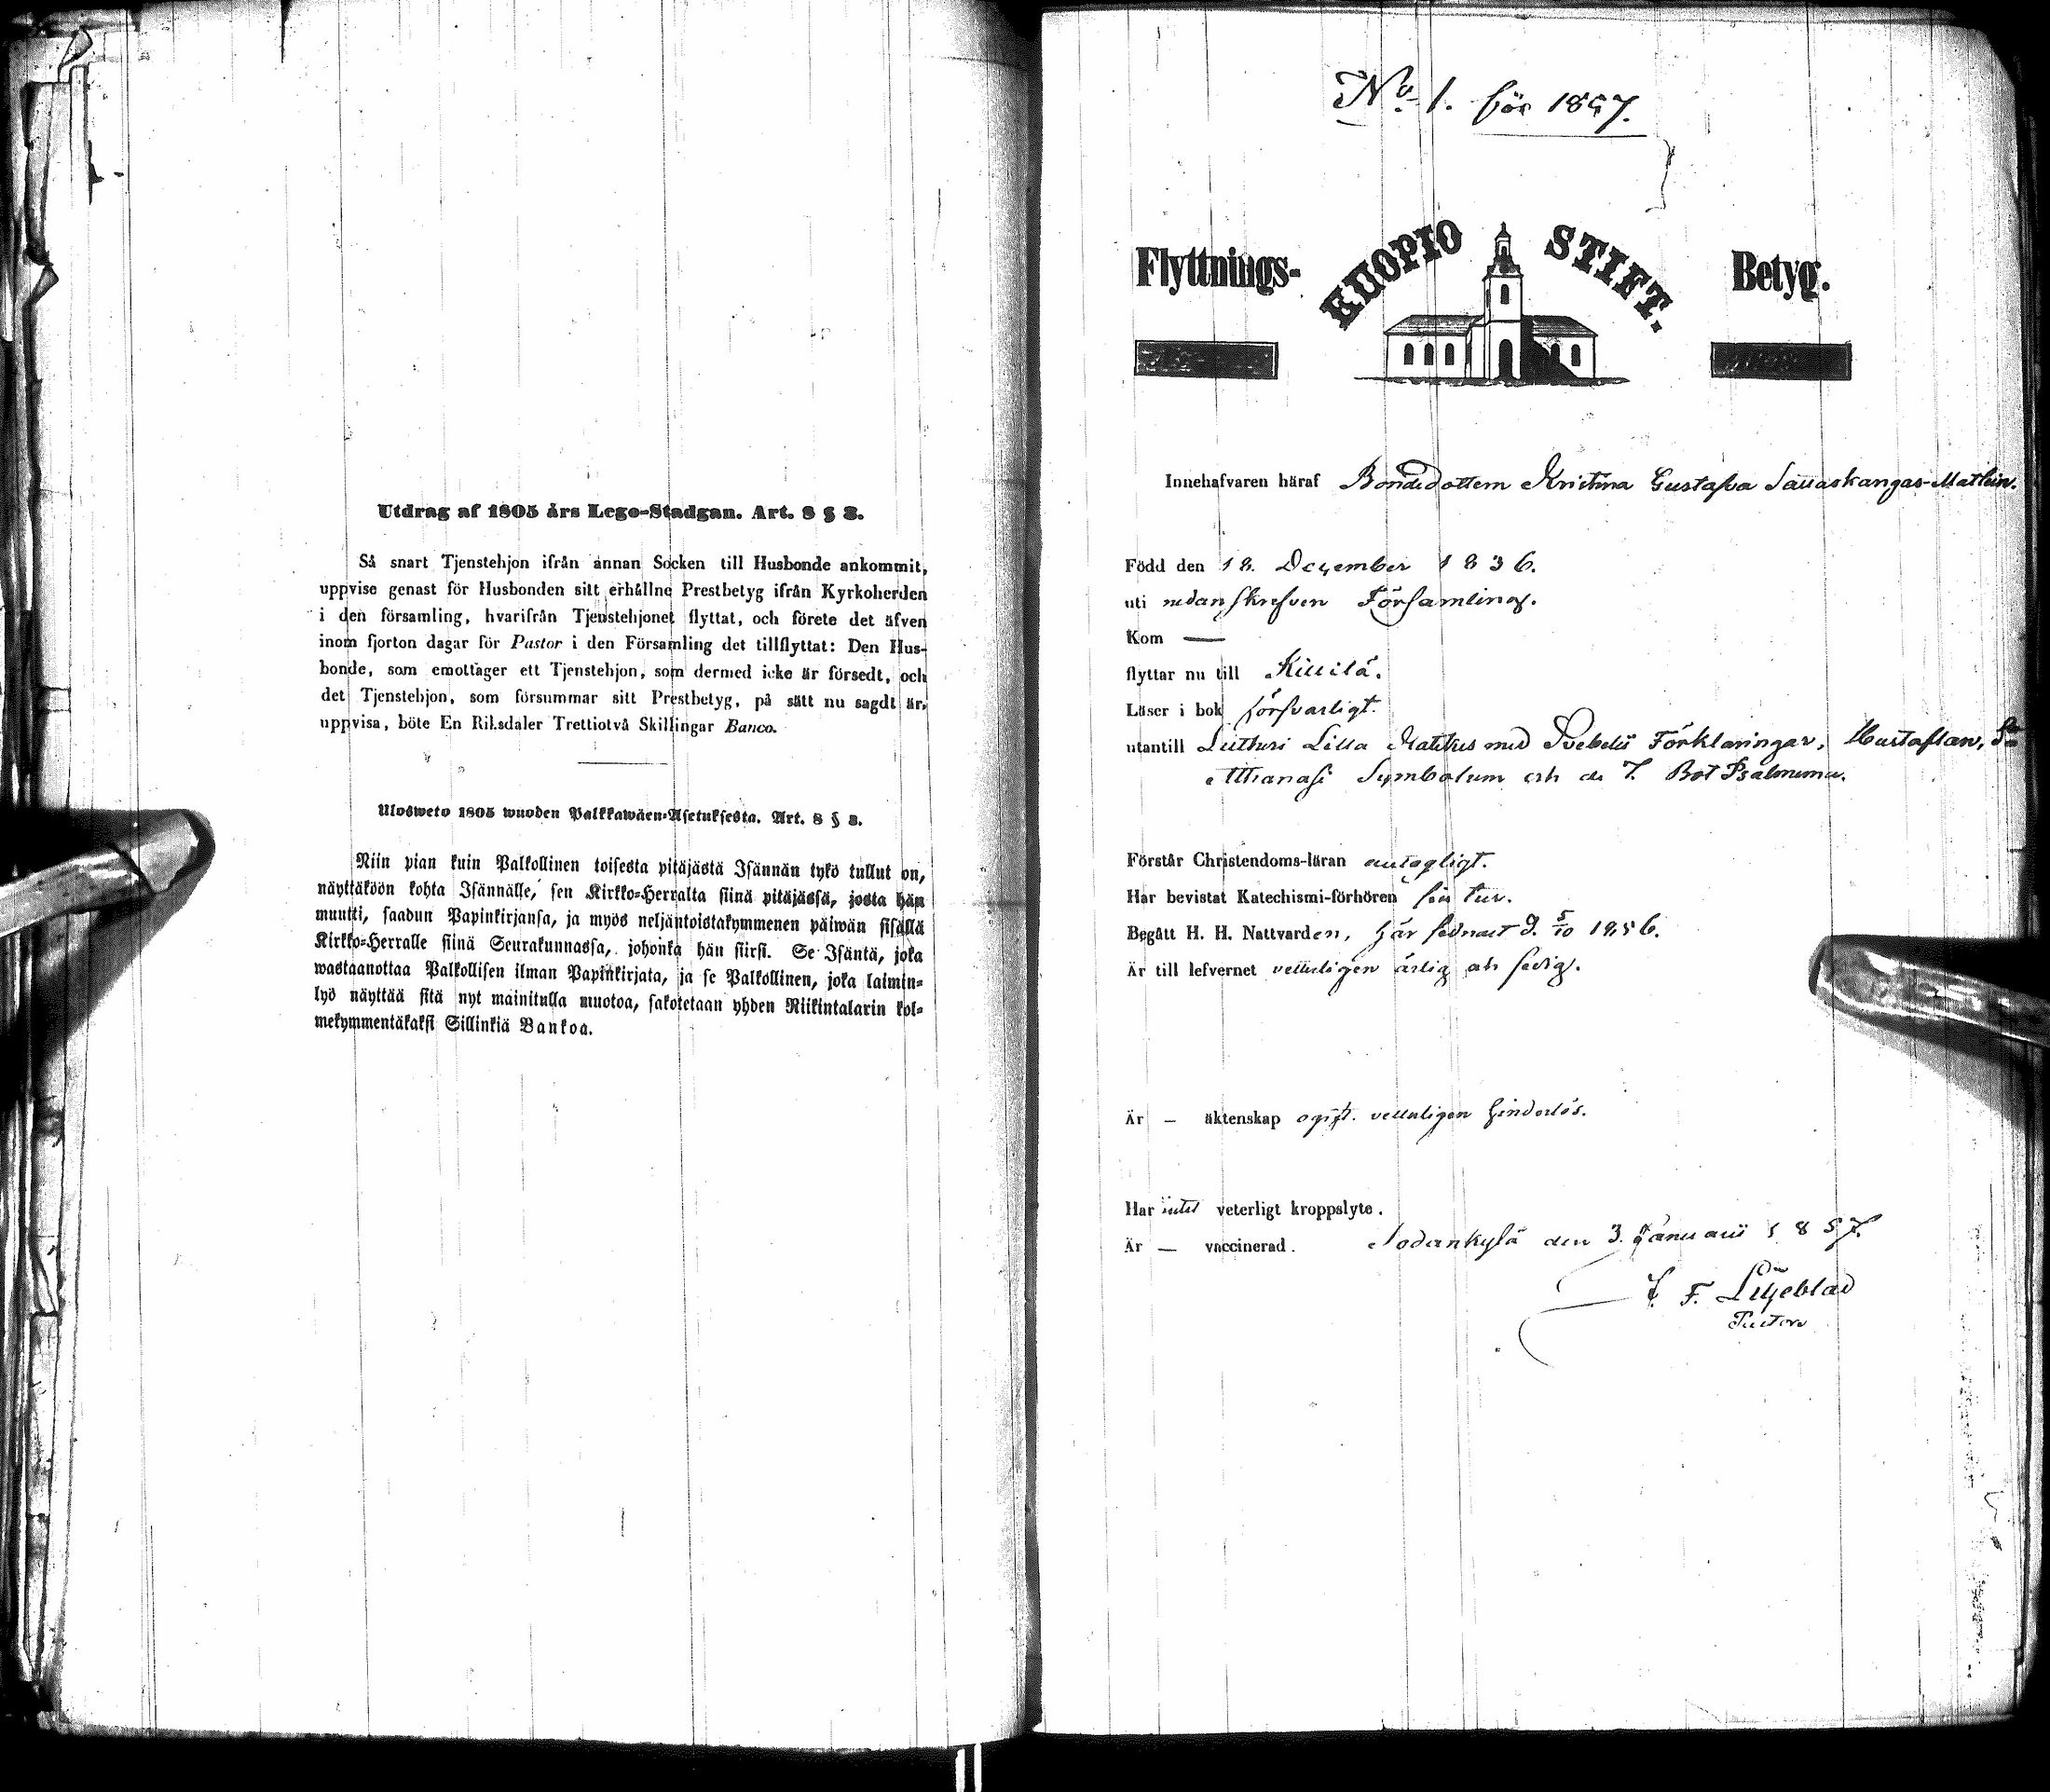 Utdrag af 1805 års Lego-Stadgan. Art. 8 § 8.
Så snart Tjenstehjon ifrån annan Socken till Husbonde ankommit,
uppvise genast för Husbonden sitt erhållne Prestbetyg ifrån Kyrkoherden
i den församling, hvarifrån Tjenstehjonet flyttat, och förete det äfven
inom fjorton dagar för Pastor i den Församling det tillflyttat: Den Hus-
bonde, som emottager ett Tjenstehjon, som dermed icke är försedt, och
det Tjenstehjon, som försummar sitt Prestbetyg, på sätt nu sagdt är,
uppvisa, böte En Riksdaler Trettiotvå Skillingar Banco.
Ulosweto 1805 wuoden Palkkawäen-Asetuksesta. Art. 8 § 8.
Niin pian kuin Palkollinen toisesta pitäjästä Isännän tykö tullut on,
näyttäköön kohta Isännälle, sen Kirkko-Herralta siinä pitäjässä, josta hän
muutti, saadun Papinkirjansa, ja myös neljäntoistakymmenen päiwän sisällä
Kirkko-Herralle siinä Seurakunnassa, johonka hän siirsi. Se Isäntä, joka
wastaanottaa Palkollisen ilman Papinkirjata, ja se Palkollinen, joka laimin-
lyö näyttää sitä nyt mainitulla muotoa, sakotetaan yhden Riikintalarin kol-
mekymmentäkaksi Sillinkiä Bankoa.
No 1. för 1857.
Flyttnings- KUOPIO STIFT. Betyg.
Innehafvaren häraf Bondedottern Kristina Gustafva Sauaskangas-Mathein.
Född den 18. December 1836.
uti nedanskrefven Församling.
Kom —
flyttar nu till Kittilä.
Läser i bok försvarligt.
utantill Lutheri Lilla Katekes med Svebelii Förklaringar, Hustaflan, St
Athanasi Symbolum och de 7. Bot Psalmerna.
Förstår Christendoms-läran antagligt.
Har bevistat Katechismi-förhören sin tur.
Begått H. H. Nattvarden, här sednast d. 5/10 1856.
Är till lefvernet vetterligen ärlig och sedig.
Är — äktenskap ogift. vetterligen hinderlös.
Har intet veterligt kroppslyte.
Är — vaccinerad. Sodankylä den 3. Januari 1857.
F. Liljeblad
Pastor